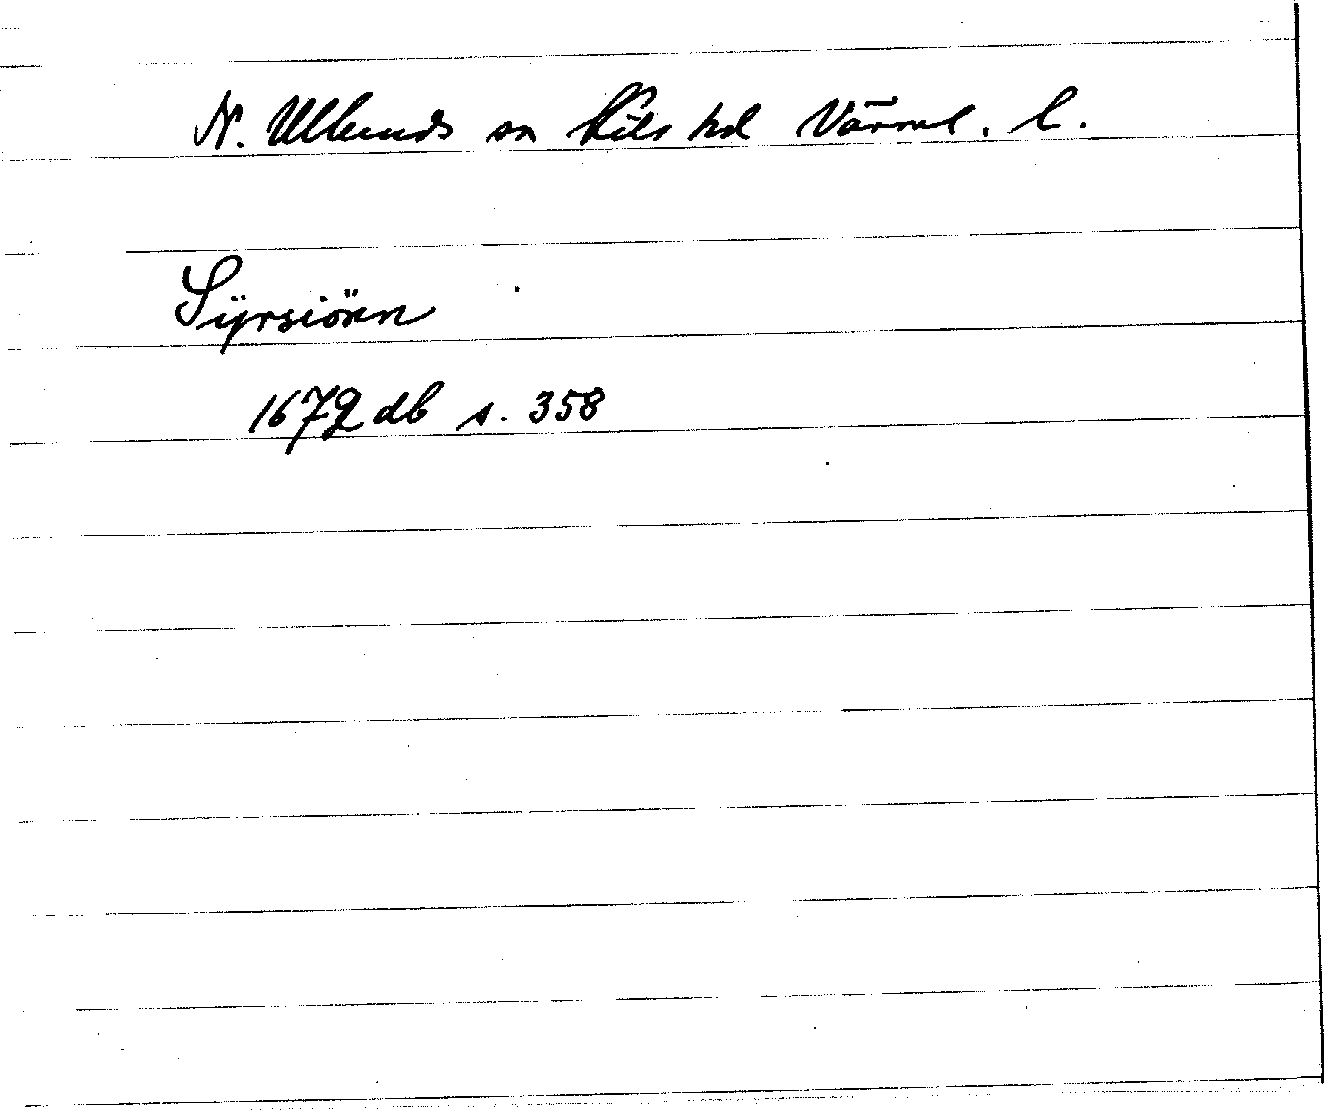 N. Ullerud sn Kils hd Värml. l.
Sÿrsiönn
1672 db s. 358